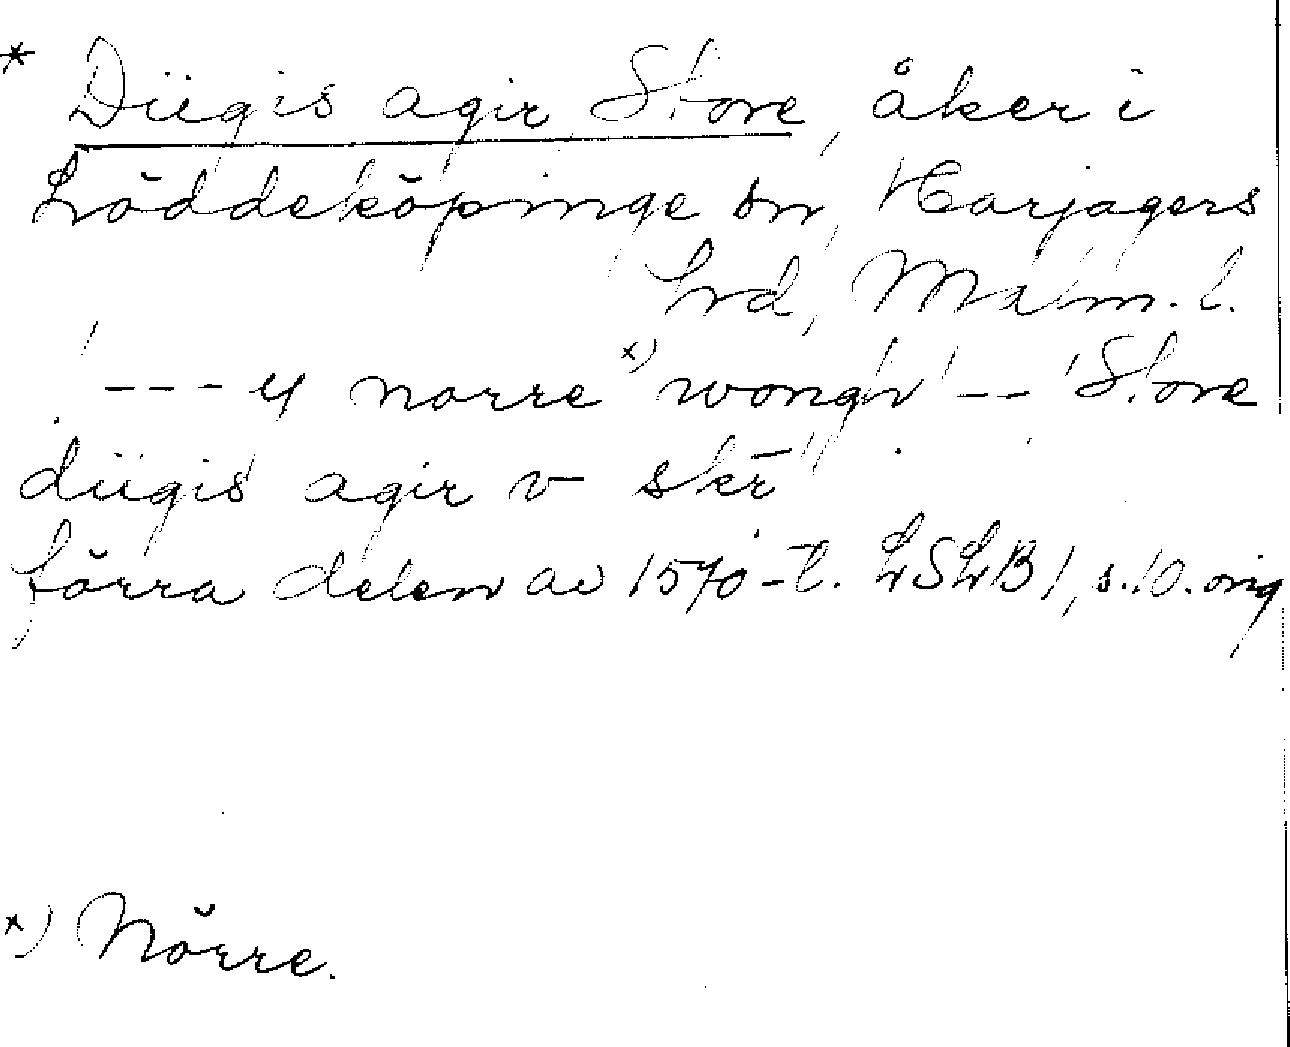 * Diigis agir, Store, åker i
Löddeköpinge sn, Harjagers
hrd, Malm. l.
--- y norre x) wongh -- Store
diigis agir v skr
förra delen av 1570-t. LSLB 1, s. 10. orig
x) Nörre.